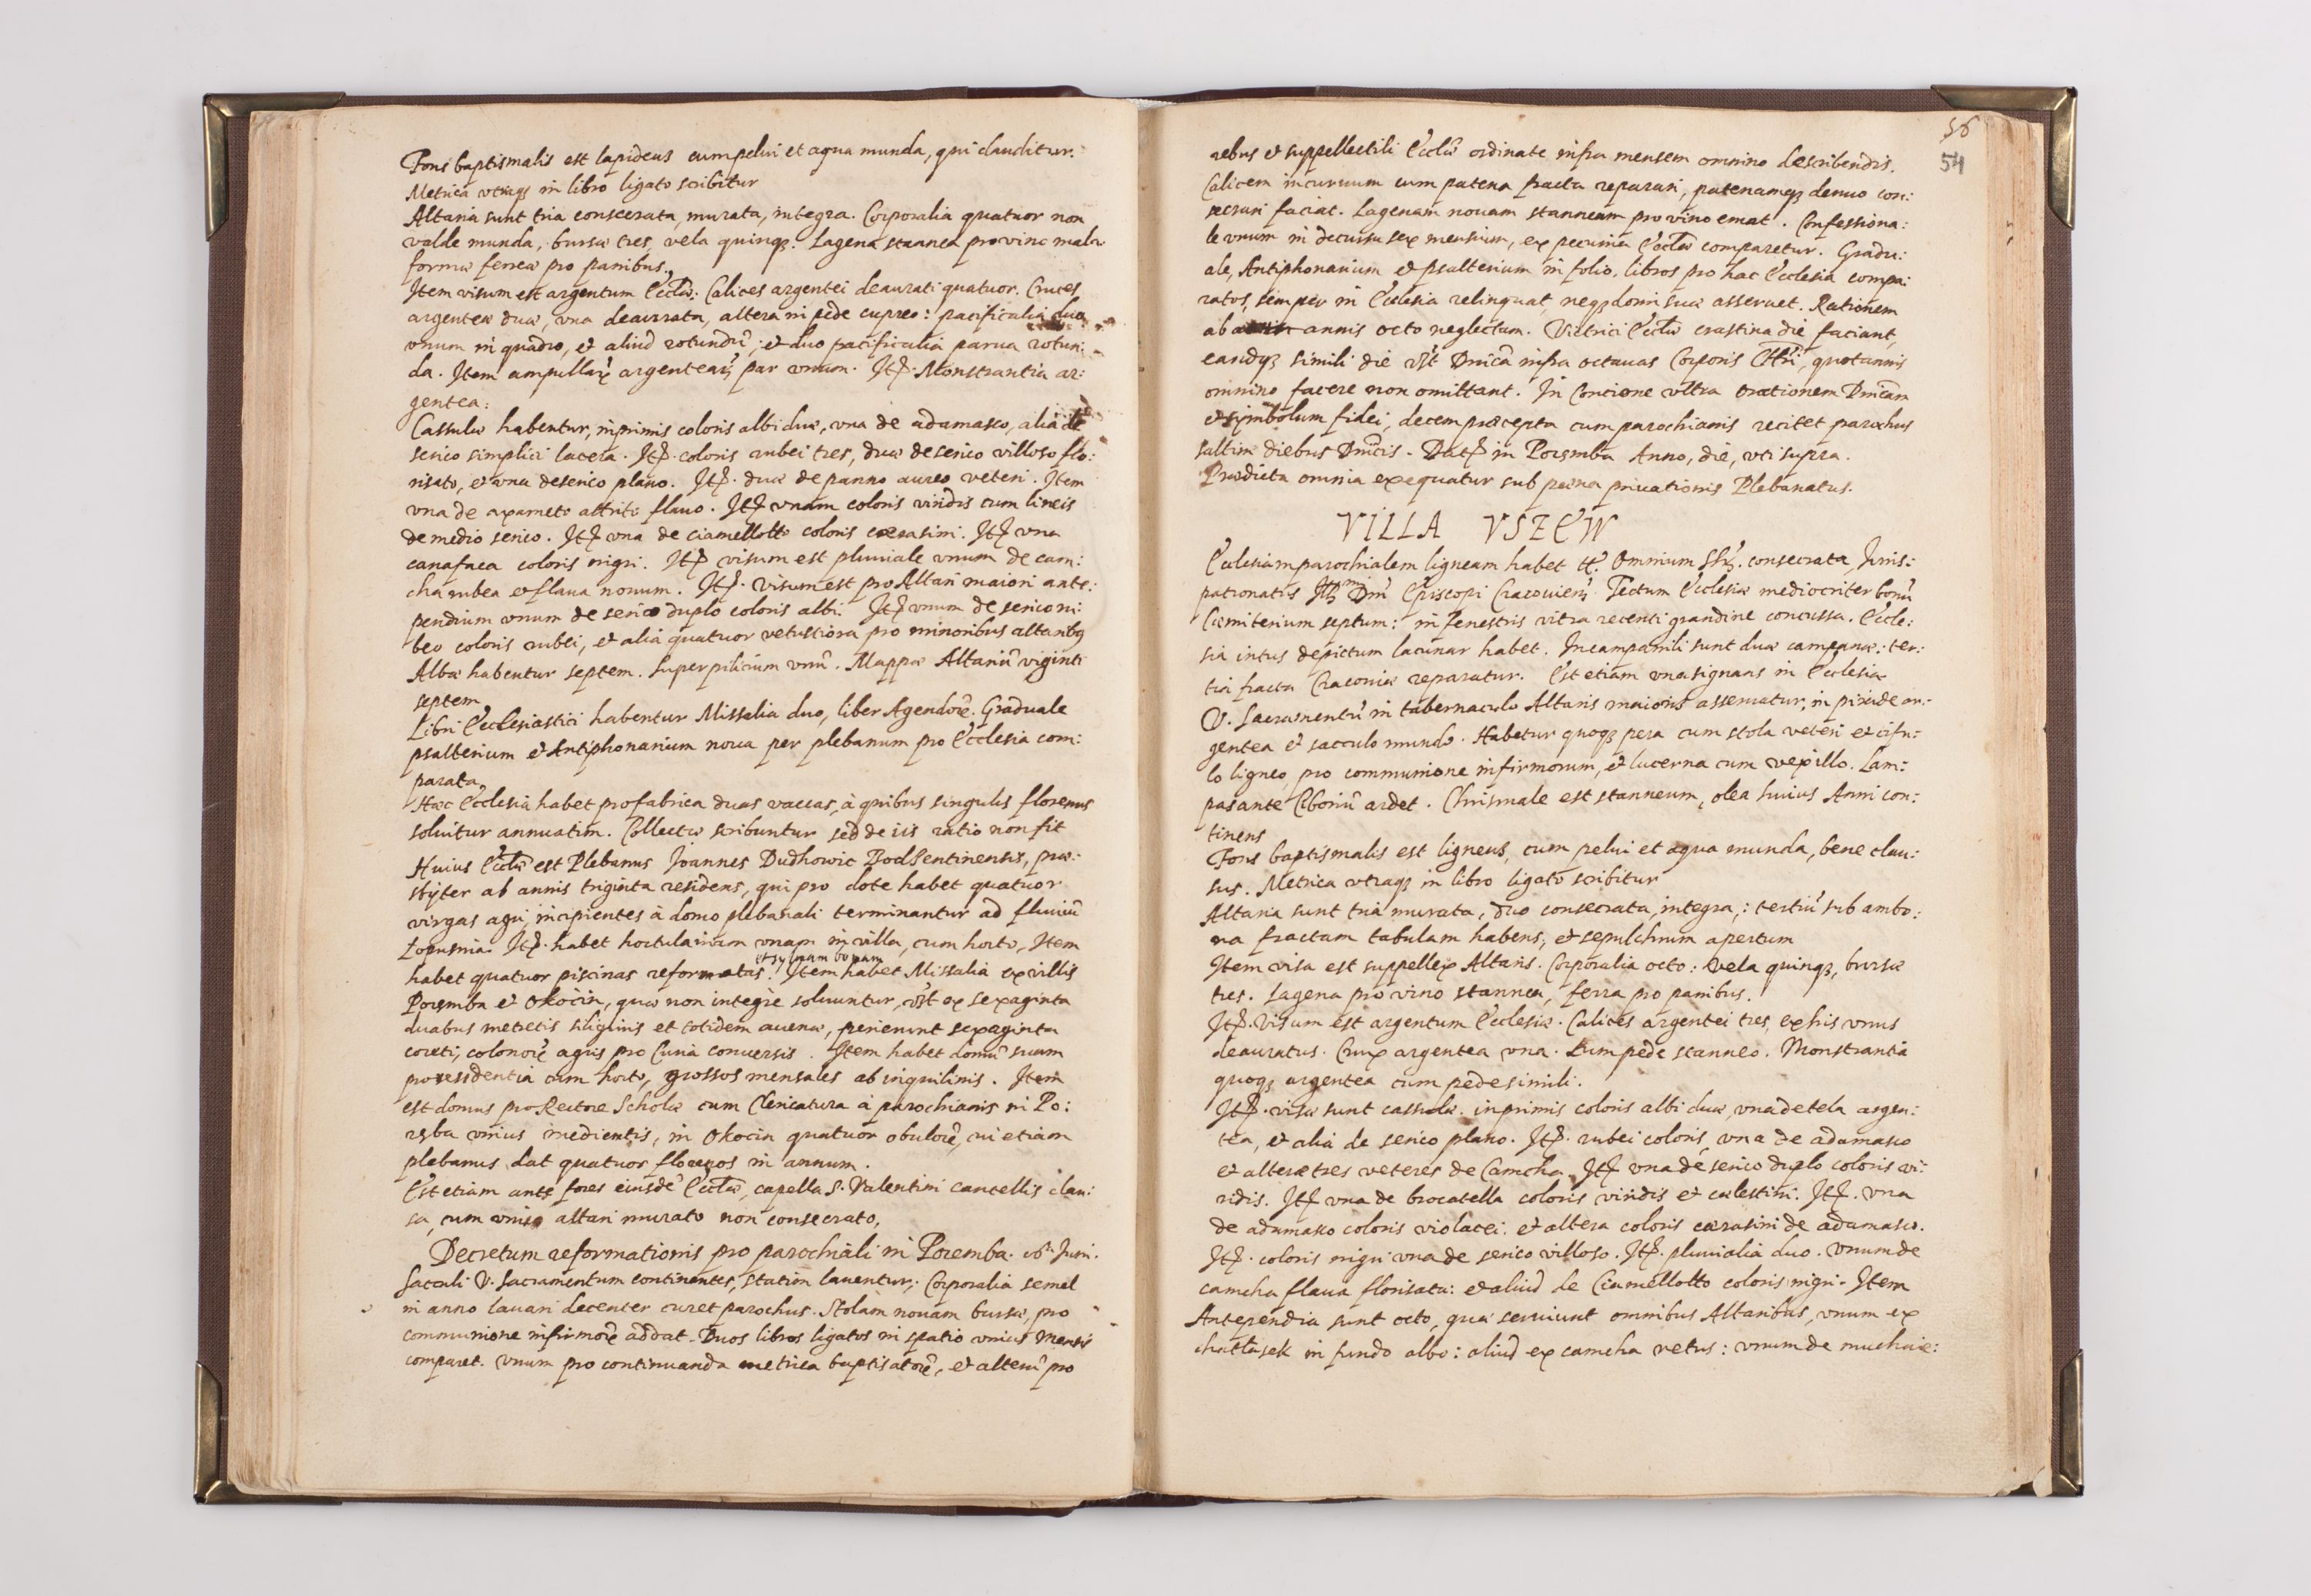 Fons baptismalis est lapideus cum pelui et aqua munda, qui clauditur.
Metrica vtraqȝ in libro ligato scribitur
Altaria sunt tria conscerata, murata, integra. Corporalia quatuor non
valde munda, bursæ tres, vela quinqȝ. Lagena stannea pro vino mala.
formæ ferreæ pro panibus.
Item visum est argentum Eccl̃æ: Calices argentei deaurati quatuor. Cruces
argenteæ duæ, vna deaurata, altera in pede cupreo: pacificalia duo
vnum in quadro, et aliud rotundũ; et duo pacificalia parua rotun:
da. Item ampullarũ argentearũ par vnum. Itȩ. Monstrantia ar:
gentea:
Cassulæ habentur, inprimis coloris albi duæ, vna de adamasco, alia de
serico simplici lacera. Itȩ. coloris rubei tres, duæ de serico villoso flo:
risato, et vna de serico plano. Itȩ. duæ de panno aureo veteri. Item
vna de axameto attrito flauo. Itȩ vnam coloris viridis cum lineis
de medio serico. Itȩ vna de ciamellotto coloris cærasini. Itȩ vna
canafaca coloris nigri. Itȩ visum est pluuiale vnum de cam:
cha rubea et flaua nouum. Itȩ. visum est pro Altari maiori ante:
pendium vnum de serico duplo coloris albi. Itȩ vnum de serico ni:
beo coloris rubei, et alia quatuor vetustiora pro minoribus altaribȝ
Albæ habentur septem. Superpilicium vnũ. Mappæ Altariũ viginti
septem.
Libri Ecclesiastici habentur Missalia duo, liber Agendorũ. Graduale
psalterium et Antiphonarium noua per plebanum pro Ecclesia com:
parata.
Hæc Ecclesia habet pro fabrica duas vaccas, à quibus singulis florenus
soluitur annuatim. Collectæ scribuntur sed de iis ratio non fit
Huius Eccl̃æ est Plebanus Joannes Dudkowic Bodsentinensis, præ:
sbyter ab annis triginta residens, qui pro dote habet quatuor
virgas agri, incipientes à domo plebanali terminantur ad fluuiũ
Lopusnia. Itȩ. habet hortulaniam vnam in villa, cum horto. Item
et syluam bonam
habet quatuor piscinas reformatas. Item habet Missalia ex villis
Poremba et Okocin, quæ non integrè soluuntur, vȝt ex sexaginta
duabus metretis siliginis et totidem auenæ, perierunt sexaginta
coreti, colonorũ agris pro Curia conuersis. Item habet domũ suam
pro residentia cum horto, grossos mensales ab inquilinis. Item
est domus pro Rectore Scholæ cum Clericatura à parochianis in Po:
reba vnius medientis, in Okocin quatuor obulorũ, cui etiam
plebanus dat quatuor florenos in annum.
Est etiam ante fores eiusdẽ Eccl̃æ, capella S. Valentini cancellis clau:
sa, cum vnico altari murato non consecrato.
Decretum reformationis pro parochiali in Poremba. Juni.
Sacculi V. Sacramentum continentes, statim lauentur; Corporalia semel
in anno lauari decenter curet parochus. Stolam nouam bursæ, pro
communione infirmorũ addat. Duos libros ligatos in spatio vnius Mensis
comparet. vnum pro continuanda metrica baptisatorũ, et alterũ pro
56
54
rebus et suppellectili Eccl̃æ ordinate infra mensem omnino describendis.
Calicem incuruum cum patena fracta reparari, patenamqȝ denuo con:
secrari faciat. Lagenam nouam stanneam pro vino emat. Confessiona:
le vnum in decursu sex mensium, ex pecunia Eccl̃æ comparetur. Gradu:
ale, Antiphonarium et psalterium in folio, libros pro hac Ecclesia compa:
ratos, semper in Ecclesia relinquat, neqȝ domi suæ asseruet. Rationem
ab annis octo neglectam. Vitrici Eccl̃æ crastina die faciant,
eandȩqȝ simili die vȝt Dnĩca infra octauas Corporis Chri, quotannis
omnino facere non omittant. In Concione vltra Orationem Dnĩcam
et symbolum fidei, decem præcepta cum parochianis recitet parochus
saltim diebus Dnĩcis. Datȩ in Poremba Anno, die, vti supra.
Prædicta omnia exequatur sub pœna priuationis Plebanatus.
VILLA VSZEW
Ecclesiam parochialem ligneam habet tt. Omnium SS. consecrata, Juris:
patronatus Illmi Dni Episcopi Cracouiens. Tectum Ecclesiæ mediocriter bonũ
Cæmiterium septum: in fenestris vitra recenti grandine concussa. Eccle:
sia intus depictum lacunar habet. In campanili sunt duæ campanæ: ter:
tia fracta Cracouiæ reparatur. Est etiam vna signans in Ecclesia
V. Sacramentũ in tabernaculo Altaris maioris asseruatur, in pixide ar:
gentea et sacculo mundo. Habetur quoqȝ pera cum stola veteri et cifu:
lo ligneo, pro communione infirmorum, et lucerna cum vexillo. Lam:
pas ante Ciboriũ ardet. Chrismale est stanneum, olea huius Anni con:
tinens
Fons baptismalis est ligneus, cum pelui et aqua munda, bene clau:
sus. Metrica vtraqȝ in libro ligato scribitur
Altaria sunt tria murata, duo consecrata, integra,: tertiũ sub ambo:
na fractam tabulam habens, et sepulchrum apertum
Item visa est suppellex Altaris. Corporalia octo: vela quinqȝ, bursæ
tres. Lagena pro vino stannea, ferra pro panibus.
Itȩ. Visum est argentum Ecclesiæ. Calices argentei tres, ex his vnus
deauratus. Crux argentea vna. cum pede stanneo. Monstrantia
quoqȝ argentea cum pede simili.
Itȩ. visæ sunt cassulæ. inprimis coloris albi duæ, vna de tela argen:
tea, et alia de serico plano. Itȩ. rubei coloris, vna de adamasco
et alteræ tres veteres de Camcha. Itȩ vna de serico duplo coloris vi:
ridis. Itȩ vna de brocatella coloris viridis et cælestini. Itȩ. vna
de adamasco coloris violacei. et altera coloris cærasini de adamasco.
Itȩ. coloris nigri vna de serico villoso. Itȩ. pluuialia duo. vnum de
camcha flaua florisata: et aliud de Ciamellotto coloris nigri. Item
Antependia sunt octo, quæ seruiunt omnibus Altaribus, vnum ex
chattasek in fundo albo: aliud ex camcha vetus: vnum de muchaie: